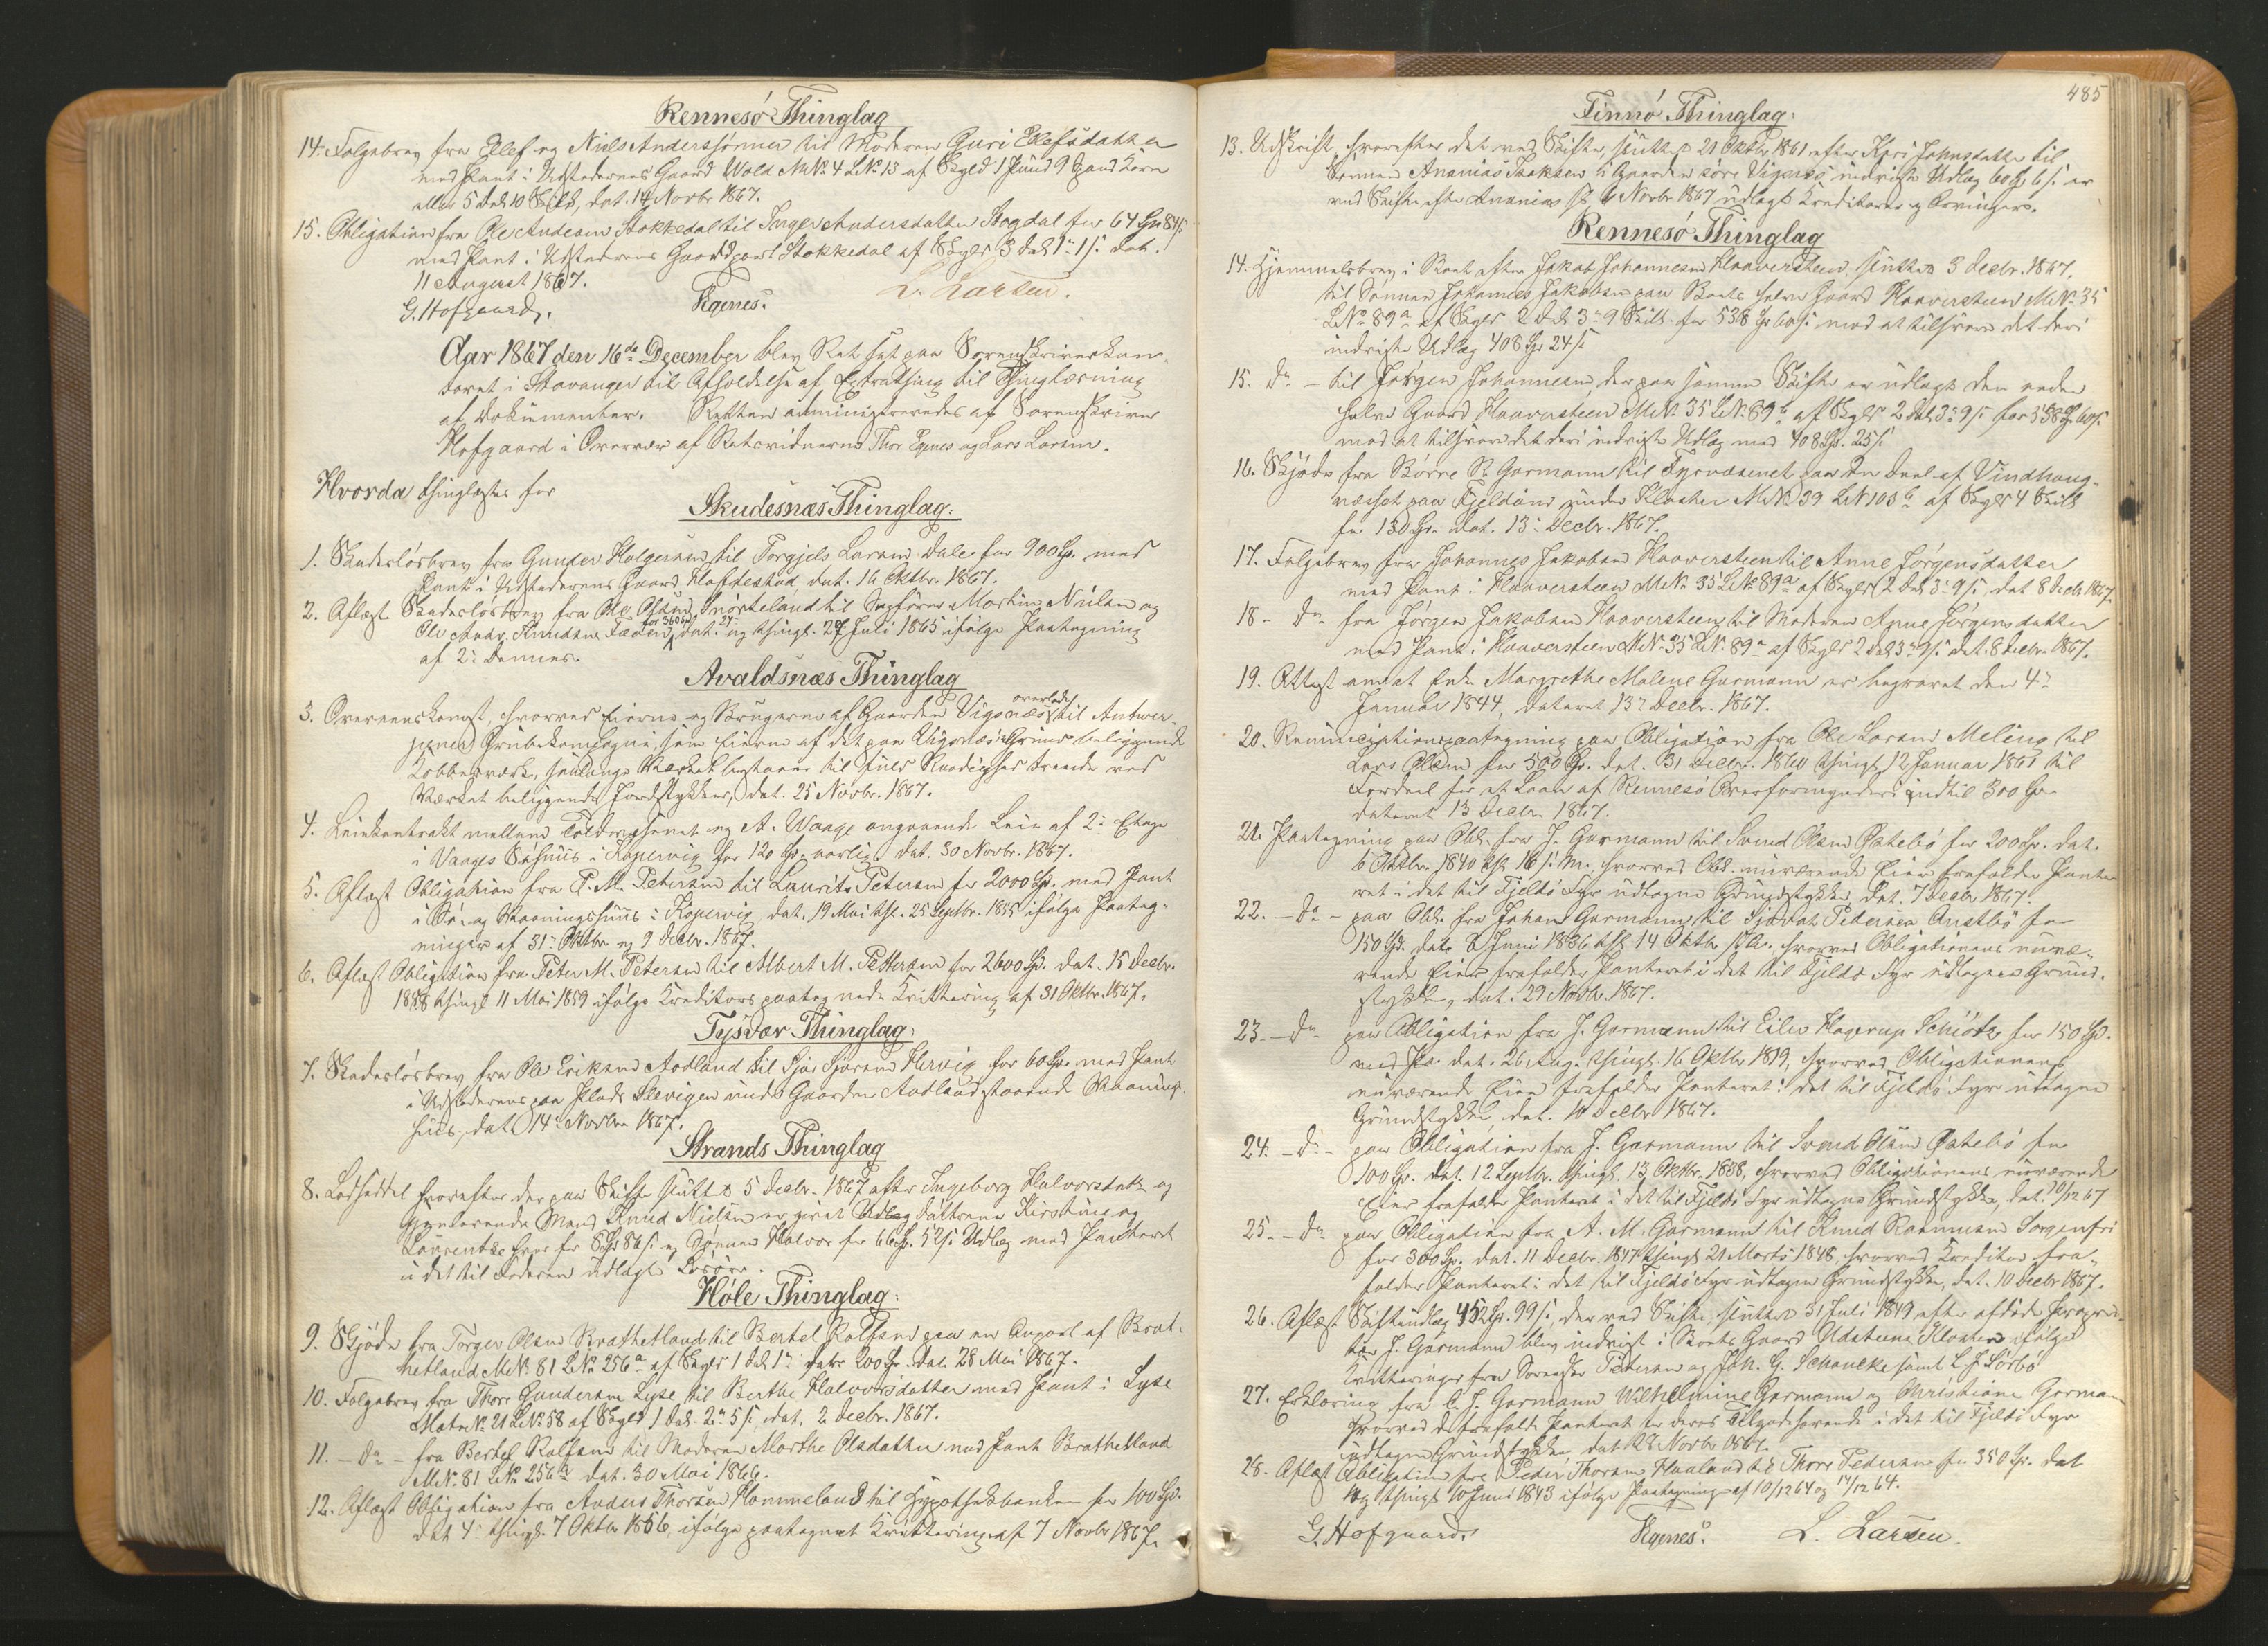 Rennesø Thinglag
14. Følgebrev fra Ellef og Niels Anderssønner til Moderen Guri Ellefsdatter
med Pant i Udstedernes Gaard Wold MNo 4 LNo 13 af Skyld 1 Pund 9 Spand Korn
eller 5 Dal. 10 Sk., dat. 14 Novbr. 1867.
15. Obligation fra Ole Andersen Stokkedal til Inger Andersdatter Stogdal for 64 Spd. 84 s.
med Pant i Udstederens Gaardpart Stokkedal af Skyld 3 Dal. 1 " 1 s. dat.
11 August 1867.
G. Hofgaard. Egenes. L. Larsen.
Aar 1867 den 16de December blev Ret sat paa Sorenskriverkon-
toret i Stavanger til Afholdelse af Extrathing til Thinglæsning
af Dokumenter. Retten administreredes af Sorenskriver
Hofgaard i Overvær af Retsvidnerne Thor Egenes og Lars Larsen.
Hvorda thinglæstes for
Skudesnæs Thinglag.
1. Skadesløsbrev fra Gunder Holgersen til Torgjels Larsen Dale for 900 Spd. med
Pant i Udstederens Gaard dat. 16 Oktbr. 1867.
2. Aflæst Skadesløsbrev fra Ole Olsen Snørteland til Sagfører Morten Nilsen og
Ole Andr. Knudsen Fæøen for 360 Spd. dat. 24 og thingl. 27 Juli 1865 ifølge Paategning
af 2 " dennes.
Avaldsnæs Thinglag
3. Overeenskomst, hvorved Eierne og Brugerne af Gaarden Vigsnæs overlader til Antwer-
pener Grubekompagni, som Eierne af det paa Vigsnæs Grund beliggende
Kobberværk, saalænge Værket bestaaer til fuld Raadighed trende ved
Værket beliggende Jordstykker, dat. 25 Novbr. 1867.
4. Leiekontrakt mellem Toldvæsenet og A. Waage angaaende Leie af 2 " Etage
i Waages Søhuus i Kopervig for 120 Spd. aarlig. dat. 30 Novbr. 1867.
5. Aflæst Obligation fra P. M. Petersen til Laurits Petersen for 2000 Spd. med Pant
i Sø- og Vaaningshuus i Kopervig, dat. 19 Mai thl. 25 Septbr. 1855 ifølge Paateg-
ninger af 31 " Oktbr. og 9 Decbr. 1867.
6. Aflæst Obligation fra Peter M. Petersen til Albert M. Petersen for 2600 Spd. dat. 15 Decbr.
1858 thingl. 11 Mai 1859 ifølge Kreditors paategnede Kvittering af 31 Oktbr. 1867.
Tysvær Thinglag.
7. Skadesløsbrev fra Ole Eriksen Aodland til Sjur Sjursen Hervig for 60 Spd. med Pant
i Udstederens paa Plads Slevigen under Gaarden Aodland staaende Vaanings-
huus, dat. 14 " Novbr. 1867.
Strands Thinglag
8. Lodseddel hvorefter der paa Skifte sluttet 5 Decbr. 1867 efter Ingeborg Halvorsdatter og
gjenlevende Mand Knud Nielsen er givet Udlæg Dattrene Kirstine og
Laurentse hver for 86 s. og Sønnen Halvor for 66 Spd. 52 s. Udlæg med Panteret
i det til Faderen udlagt Løsøre.
Høle Thinglag.
9. Skjøde fra Torger Olsen Brathetland til Bertel Rolfsen paa en Anpart af Brat-
hetland MNo 81 LNo 256a af Skyld 1 Dal. 1 " dat. 28 Mai 1867.
10. Følgebrev fra Thore Gundersen Lyse til Berthe Halvorsdatter med Pant i Lyse
Matr.No 21 LNo 58 af Skyld 1 Dal. 2 " 5 s. dat. 2 Decbr. 1867.
11. – Do – fra Bertel Rolfsen til Moderen Marthe Olsdatter med Pant Brathetland
MNo 81 LNo 256a dat. 30 Mai 1866.
12. Aflæst Obligation fra Anders Thorsen Hommeland til Hypothekbanken for 100 Spd.
dat. 4 " thingl. 7 Oktbr. 1856, ifølge paategnet Kvittering af 7 Novbr. 1867.
485
Finnø Thinglag.
13. Udskrift, hvorefter det ved Skifte sluttet 21 Oktbr. 1861 efter Kari Johnsdatter til
Sønnen Ananias Isaksen i Gaarden søre Vignæs indviste Udlæg 60 Spd. 6 s. er
ved Skifte efter Ananias St. 6 Novbr. 1867 udlagt Kreditorer og Arvinger.
Rennesø Thinglag
14. Hjemmelsbrev i Boet efter Jakob Johannesen Haaversteen, sluttet 3 Decbr. 1867,
til Sønnen Johannes Jakobsen paa Boets halve Gaard Haaversteen MNo 35
LNo 89a af Skyld 2 Dal. 3 " 9 Skill. for 538 Spd. 60 s. mod at tilsvare det deri
indviste Udlæg 408 Spd. 24 s.
15. Do – til Jørgen Johannesen, der paa samme Skifte er udlagt den anden
halve Gaard Haaversteen MNo 35 LNo 89b af Skyld 2 Dal. 3 " 9 s. for 538 Spd. 60 s.
mod at tilsvare det deri indviste Udlæg med 408 Spd. 25 s.
16. Skjøde fra Børre R. Garmann til Fyrvæsenet paa en Deel af Vindhaug-
næsset paa Fjeldøen under Kloster MNo 39 LNo 103b af Skyld 4 Skill.
for 130 Spd. dat. 13 " Decbr. 1867.
17. Følgebrev fra Johannes Jakobsen Haaversteen til Anne Jørgensdatter
med Pant i Haaversteen MNo 35 LNo 89a af Skyld 2 Dal. 3 " 9 s. dat. 8 Decbr. 1867.
18 – Do – fra Jørgen Jakobsen Haaversteen til Moderen Anne Jørgensdatter
med Pant i Haaversteen MNo 35 LNo 89a af Skyld 2 Dal. 3 " 9 s. dat. 8 Decbr. 1867.
19. Attest om at Enke Margrethe Malene Garmann er begravet den 4 "
Januar 1844, dateret 13 " Decbr. 1867.
20. Renunciationspaategning paa Obligation fra Ole Larsen Meling til
Lars Olsen for 500 Spd. dat. 31 Decbr. 1860 thingl. 12 Januar 1861 til
Fordeel for et Laan af Rennesø Overformynderi indtil 300 Spd.
dateret 13 Decbr. 1867.
21. Paategning paa Obl. fra J. Garmann til Svend Olsen Østebø for 200 Spd. dat.
6 Oktbr. 1840 thl. 16 s. M., hvorved Obl. nuværende Eier frafalder Pante-
ret i det til Fjeldø Fyr udtagne Grundstykke, dat. 7 Decbr. 1867.
22. – Do – paa Obl. fra Johan Garmann til Sjovat Pedersen Austbø for
150 Spd. dat. 8 Juni 1836 thl. 14 Oktbr. s. A. hvorved Obligationens nuvæ-
rende Eier frafalder Panteret i det til Fjeldø Fyr udtagne Grund-
stykke, dat. 29 Novbr. 1867.
23. – Do – paa Obligation fra J. Garmann til Eiler Hagerup Schiøtz for 150 Spd.
med Pa. dat. 26 Aug. thingl. 16 Oktbr. 1819, hvorved Obligationens
nuværende Eier frafalder Panteret i det til Fjeldø Fyr udtagne
Grundstykke, dat. 10 Decbr. 1867.
24. – Do – paa Obligation fra J. Garmann til Svend Olsen Østebø for
100 Spd. dat. 12 Septbr. thingl. 13 Oktbr. 1838, hvorved Obligationens nuværende
Eier frafalder Panteret i det til Fjeldø Fyr udtagne Grundstykke, dat. 10/12 67
25 – Do paa Obligation fra A. M. Garmann til Knud Rasmussen Sorgenfri
for 300 Spd. dat. 11 Decbr. 1847 thingl. 21 Marts 1848, hvorved Kreditor fra-
falder Panteret i det til Fjeldø Fyr udtagne Grundstykke, dat. 10 Decbr. 1867.
26. Aflæst Skifteudlæg 452 Spd. 99 s., der ved Skifte sluttet 31 Juli 1849 efter afdøde Propriæ-
tær J. Garmann blev indvist i Boets Gaard Udsteens Kloster ifølge
Kvitteringer fra Sorenskr. Petersen og Joh. G. Schancke samt L. J. Sørbø
27. Erklæring fra C. J. Garmann Wilhelmine Garmann og Christiane Garmann
hvorved de frafalde Panteret for deres Tilgodehavende i det til Fjeldø Fyr
udtagne Grundstykke, dat. 28 Novbr. 1867.
28. Aflæst Obligation fra Peder Thorsen Haaland til Thore Pedersen for 350 Spd. dat
og thingl. 10 Juni 1843 ifølge Paategning af 10/12 64 og 14/12 64.
G. Hofgaard. Egenes. L. Larsen.